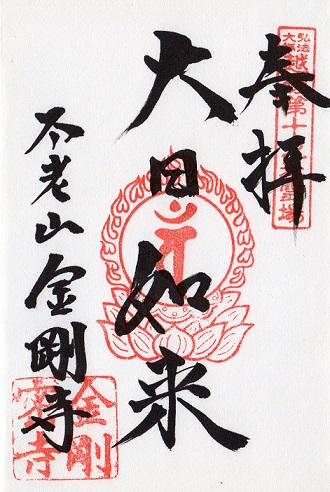 奉拝
弘法
大師
越
第十
霊場
大日如来
不老山金剛寺
金剛
寺